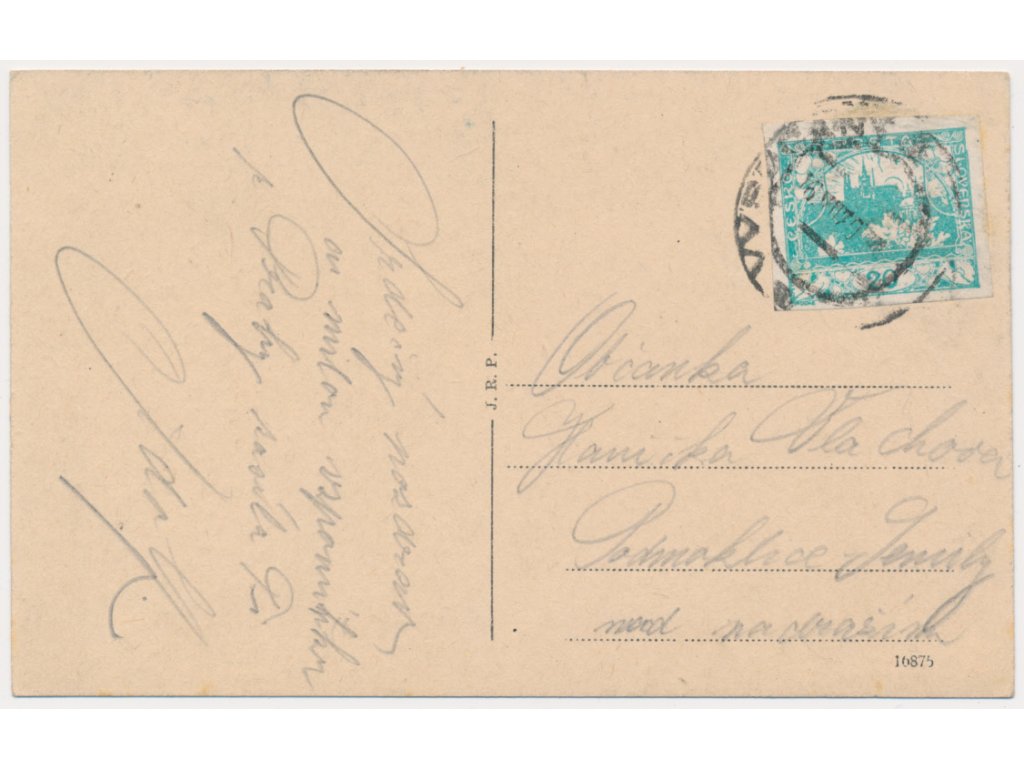 Srdečný pozdrav
a milou vzpomínku
z Prahy zasílá Ti
J. R. P.
ČESKO
SLOVENSKÁ
20
Občanka
Hanička Vlachova
Podmoklice Semily
nad nádražím
16875